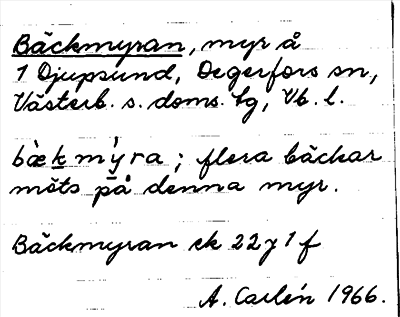 Bäckmyran, myr å
1 Djupsund, Degerfors sn,
Västerb. s. doms. tg, Vb. l.
bæ̀k mýra; flera bäckar
möts på denna myr.
Bäckmyran ek 22 y 1 f
A. Carlén 1966.